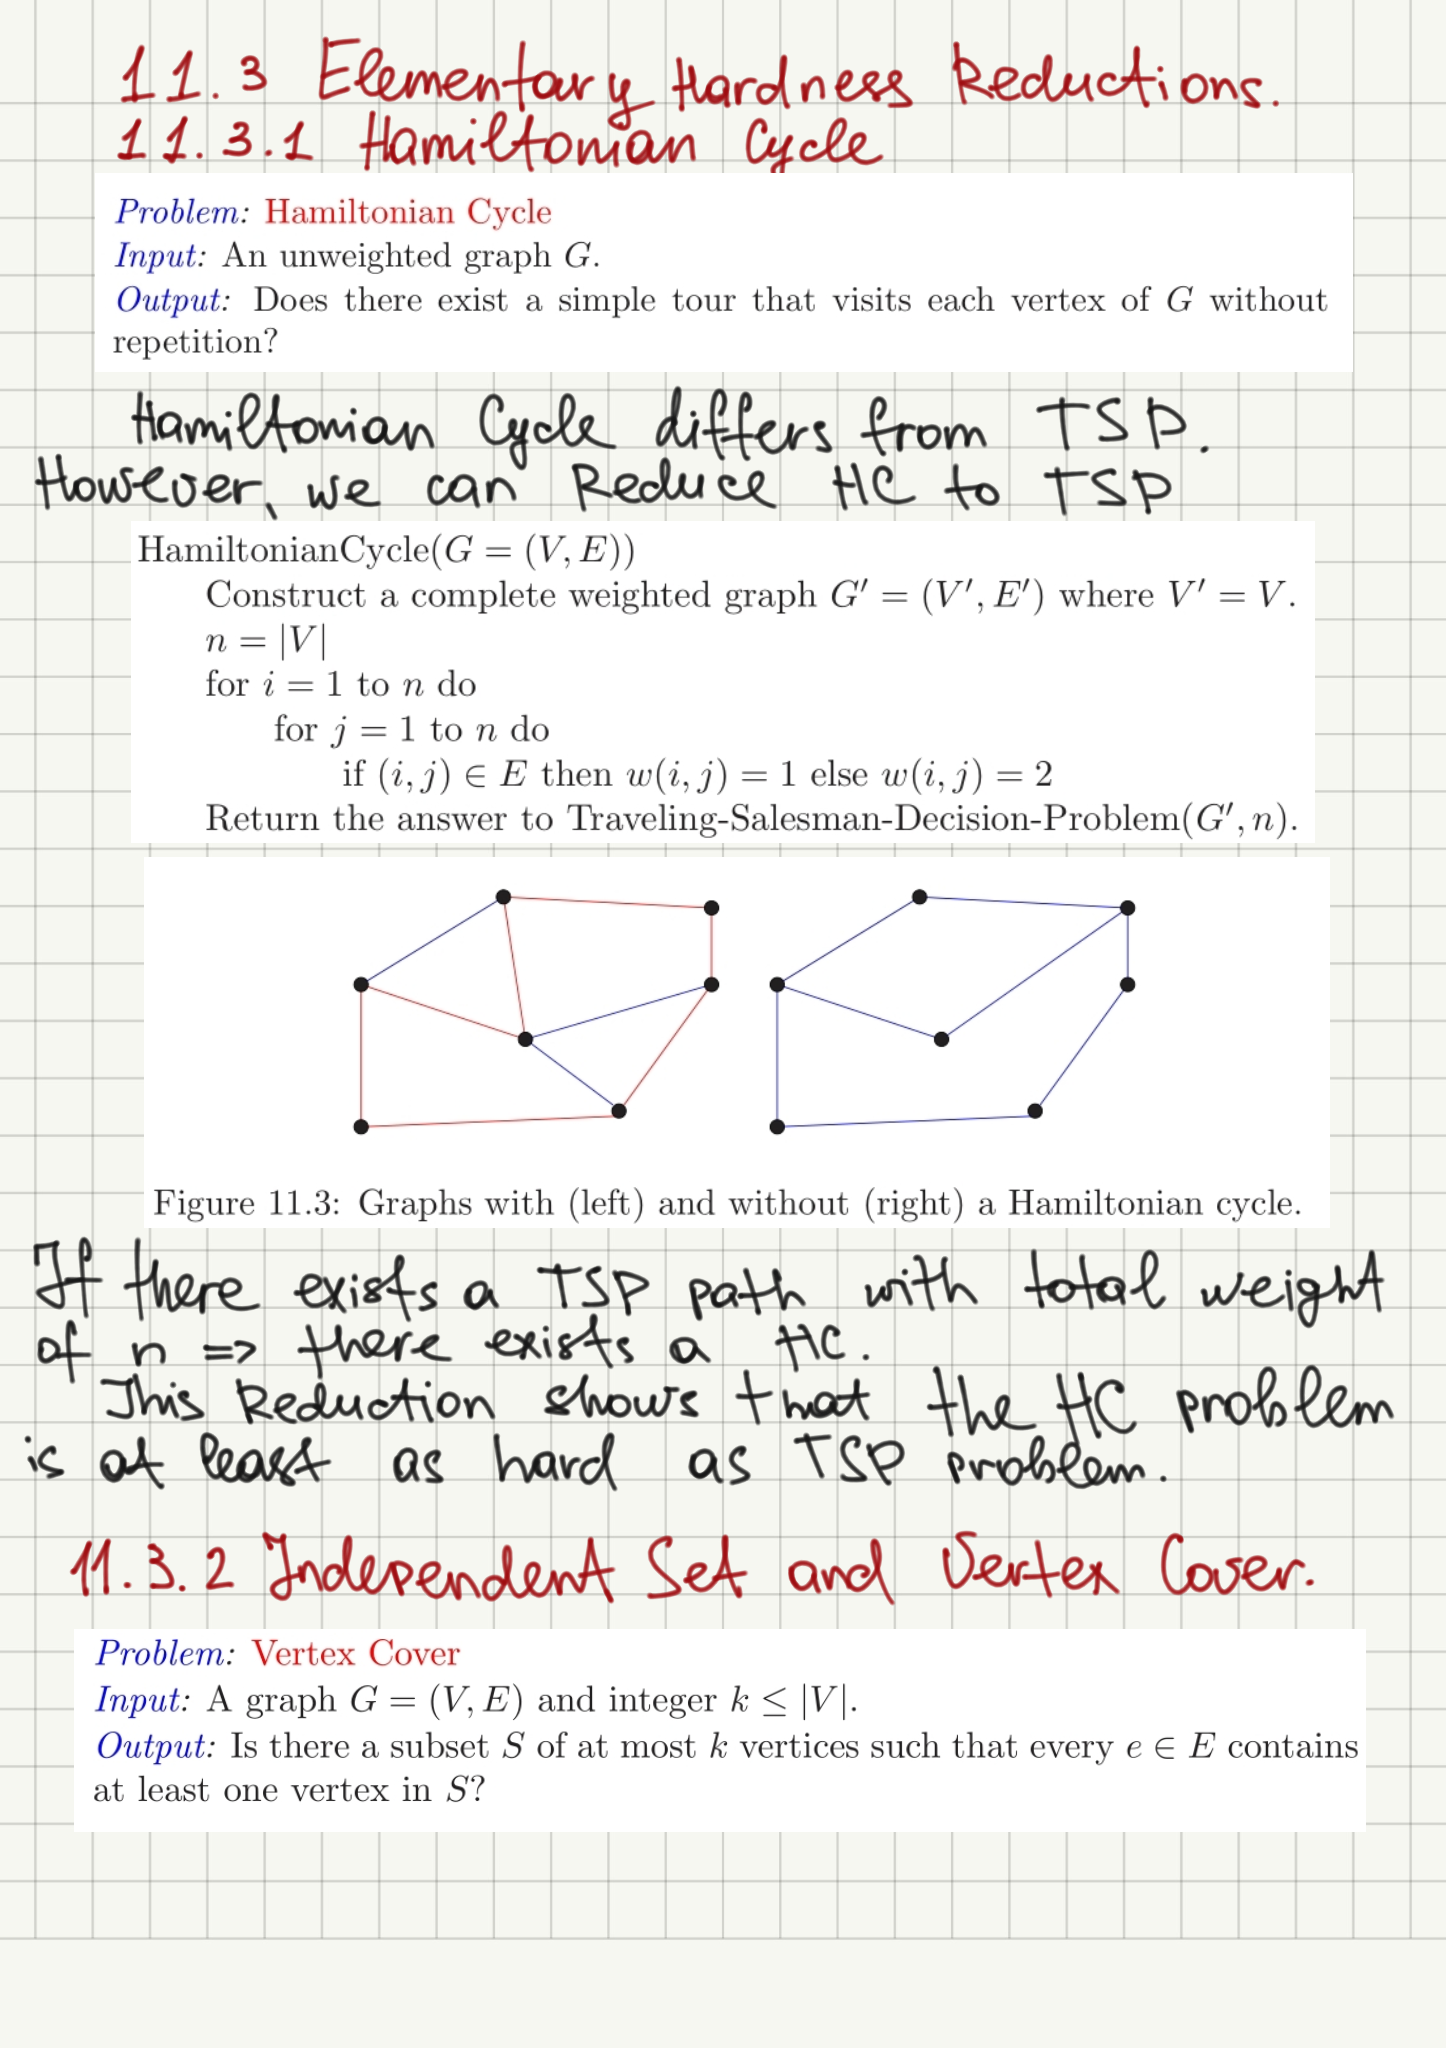 11.3 Elementary Hardness Reductions.
11.3.1 Hamiltonian Cycle
Problem: Hamiltonian Cycle
Input: An unweighted graph G.
Output: Does there exist a simple tour that visits each vertex of G without
repetition?
Hamiltonian Cycle differs from TSP.
However, we can Reduce HC to TSP
HamiltonianCycle(G = (V, E))
Construct a complete weighted graph G′ = (V′, E′) where V′ = V.
n = |V|
for i = 1 to n do
for j = 1 to n do
if (i, j) ∈ E then w(i, j) = 1 else w(i, j) = 2
Return the answer to Traveling-Salesman-Decision-Problem(G′, n).
Figure 11.3: Graphs with (left) and without (right) a Hamiltonian cycle.
If there exists a TSP path with total weight
of n => there exists a HC.
This Reduction shows that the HC problem
is at least as hard as TSP problem.
11.3.2 Independent Set and Vertex Cover.
Problem: Vertex Cover
Input: A graph G = (V, E) and integer k ≤ |V|.
Output: Is there a subset S of at most k vertices such that every e ∈ E contains
at least one vertex in S?